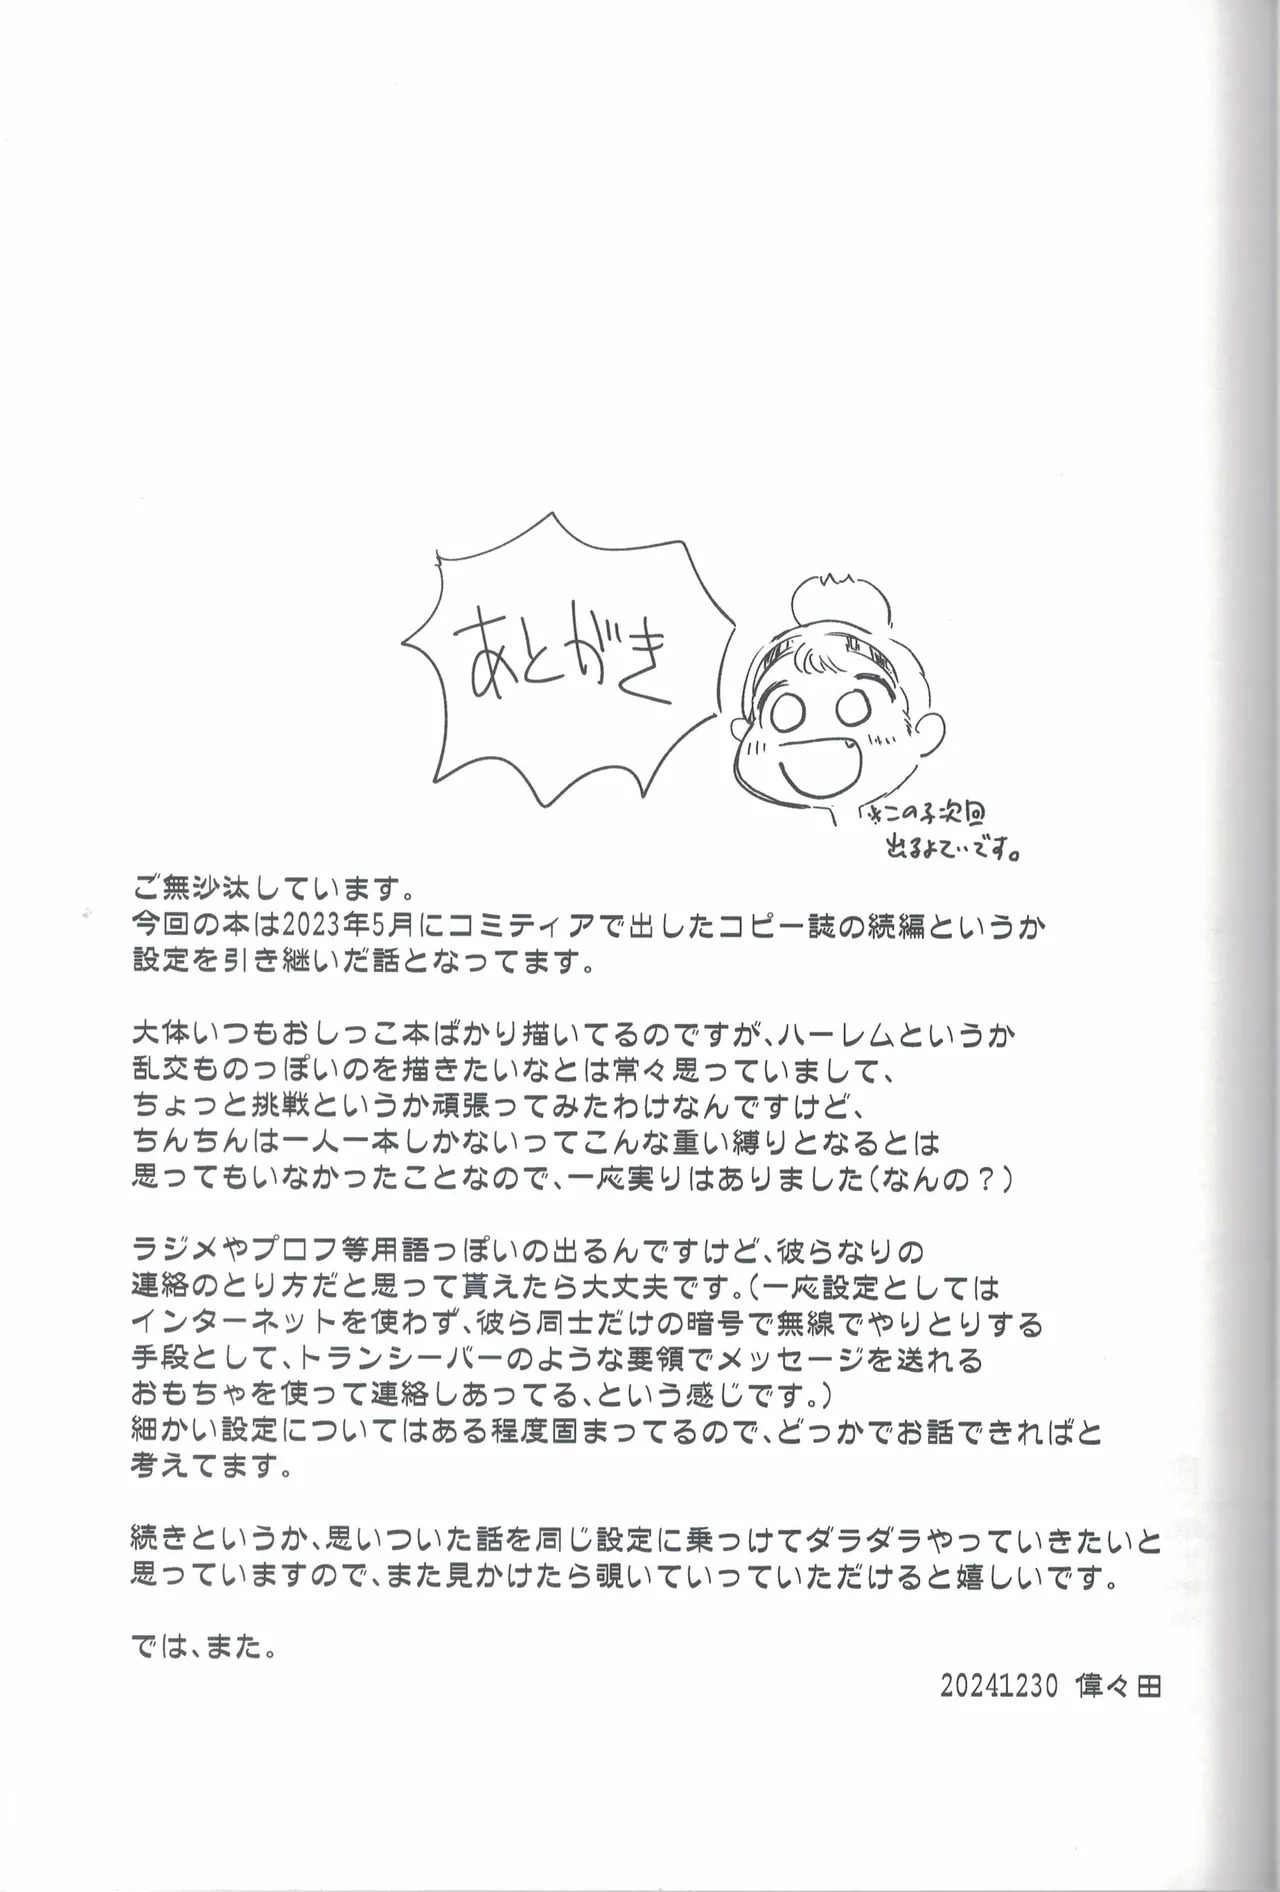 あとがき
※この子次回
出るよてぃです。
ご無沙汰しています。
今回の本は2023年5月にコミティアで出したコピー誌の続編というか
設定を引き継いだ話となってます。
大体いつもおしっこ本ばかり描いてるのですが、ハーレムというか
乱交ものっぽいのを描きたいなとは常々思っていまして、
ちょっと挑戦というか頑張ってみたわけなんですけど、
ちんちんは一人一本しかないってこんな重い縛りとなるとは
思ってもいなかったことなので、一応実りはありました(なんの？)
ラジメやプロフ等用語っぽいの出るんですけど、彼らなりの
連絡のとり方だと思って貰えたら大丈夫です。(一応設定としては
インターネットを使わず、彼ら同士だけの暗号で無線でやりとりする
手段として、トランシーバーのような要領でメッセージを送れる
おもちゃを使って連絡しあってる、という感じです。)
細かい設定についてはある程度固まってるので、どっかでお話できればと
考えてます。
続きというか、思いついた話を同じ設定に乗っけてダラダラやっていきたいと
思っていますので、また見かけたら覗いていっていただけると嬉しいです。
では、また。
20241230 偉々田